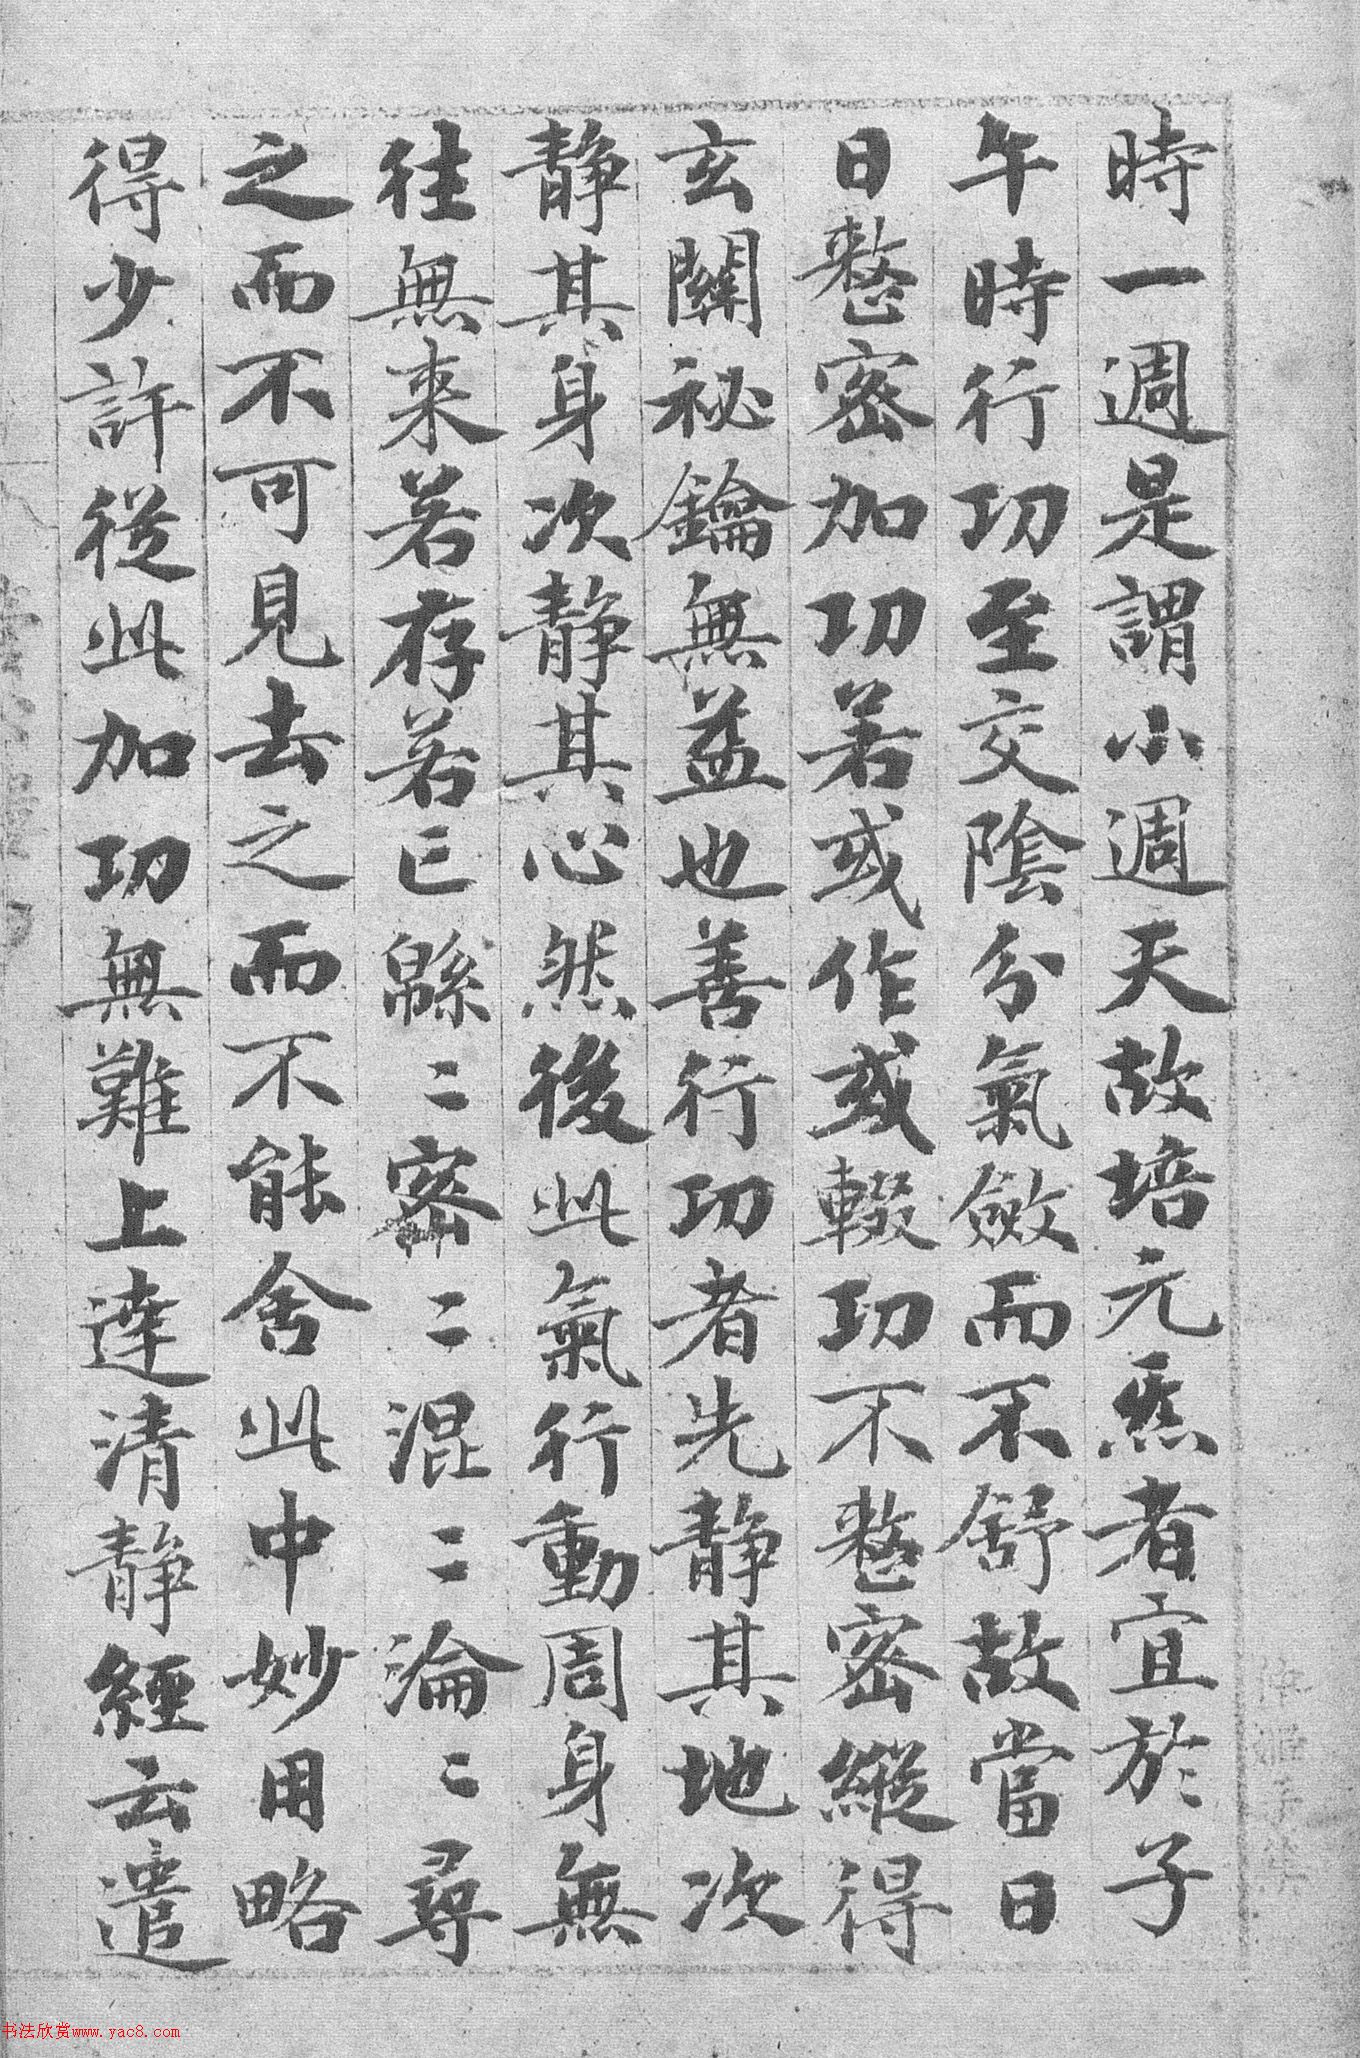 時一週是謂小週天故培元炁者宜於子
午時行功至交陰分氣斂而不舒故當日
日整密加功若或作或輟功不整密縱得
玄關祕鑰無益也善行功者先靜其地次
靜其身次靜其心然後此氣行動周身無
往無來若存若亡緜〻密〻混〻淪〻尋
之而不可見去之而不能舍此中妙用略
得少許從此加功無難上達清靜經云遣
书法欣赏www.yac8.com